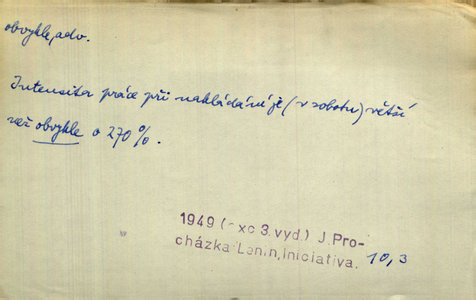 obvykle, adv.
Intensita práce při nakládání je (v sobotu) větší
než obvykle o 270 %.
1949 ( xc 3.vyd.) J.Pro-
cházka:Lenin,Iniciativa. 10,3